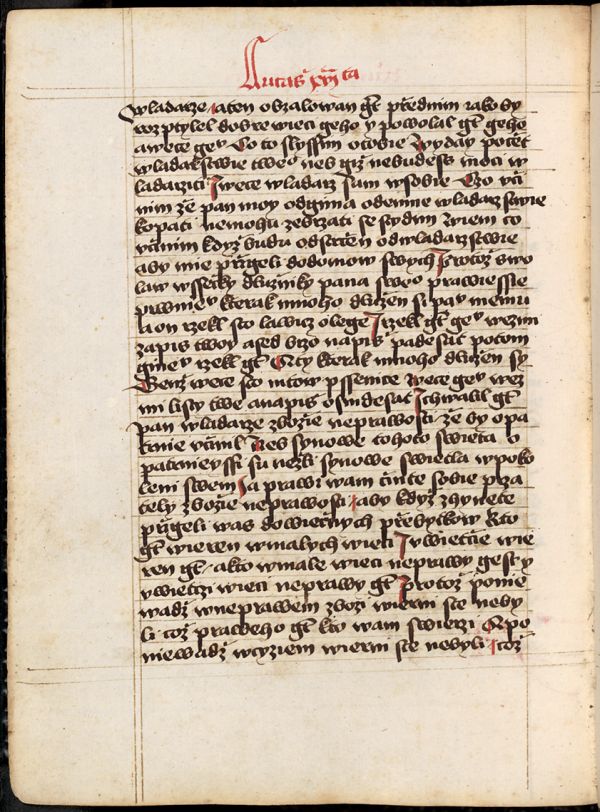 Lucas xvi ta
wladarze iaten obzalowan gt przednim iako by
rozptylel dobre wieci geho y powolal gt geho
awece gev Co to slyssim otobie Wyday potet
wladarstwie tweo nes giz nebudess moci w
ladarziti Iwece wladarz sam wsobie Czo uci
nim ze pan moy odgima odemne wladarzstwie
kopati nemohu zebrzati se stydim Wiem co
ucinim kdyz budu odstrcen odwladarzstwie
aby mie prigeli dodomow swych Iprotoz swo
law wssecky dluzniky pana sweo prawiessie
prwniev kterak mnoho dluzen si panu memu
Aon rzekl sto lawicz olege Irzekl gt gev wezmi
zapis twoy ased brzo napis padesat potom
ginev rzekl gt Aty kterak mnoho dluzen sy
Genz wece sto mtow pssenice Iwece gev wez
mi listy twe anapis osmdesat Ichwalil gt
pan wladarze zbozie neprawosti ze by opa
trnie ucinil Nes synowe tohoto swieta o
patrnieyssi su nezli synowe swietla wpoko
leni swem Ia prawi wam cinte sobie prza
tely zbozie neprawosti Aby kdyz zhynete
przigeli was dowiecnych przebytkow Kto
gt wieren wmalych wieci Iuwietcie wie
ren gt akto wmale wieci neprawy gest y
uwietczi wieci neprawy gt Protoz ponie
wadz wneprawem zbozi wierni ste neby
li coz praweho gt kto wam swierzi Apo
niewadz wcyziem wierni ste nebyli Icoz